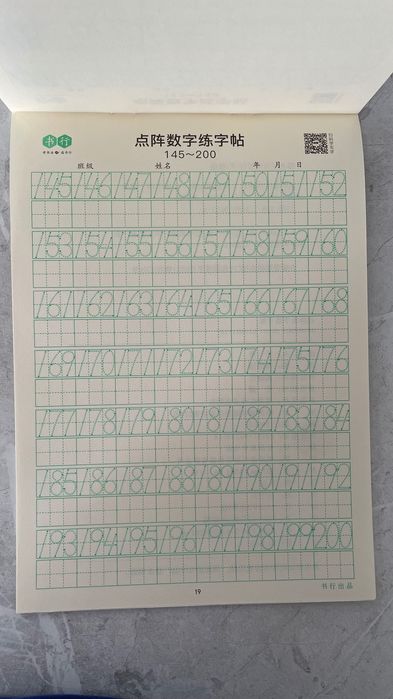 书行
点阵数字练字帖
145~200
班级 姓名 年 月 日
145 146 147 148 149 150 151 152
153 154 155 156 157 158 159 160
161 162 163 164 165 166 167 168
169 170 171 172 173 174 175 176
177 178 179 180 181 182 183 184
185 186 187 188 189 190 191 192
193 194 195 196 197 198 199 200
19
书行出品